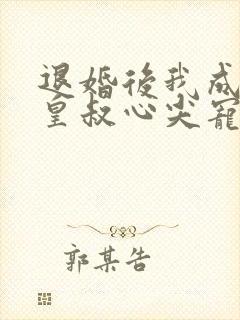 退婚後我成
皇叔心尖寵
郭某告